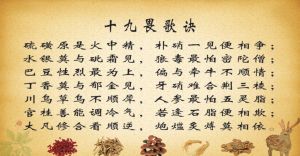 十九畏歌诀
硫磺原是火中精，朴硝一见便相争；
水银莫与砒霜见，狼毒最怕密陀僧；
巴豆性烈最为上，偏与牵牛不顺情；
丁香莫与郁金见，牙硝难合荆三棱；
川乌草乌不顺犀，人参最怕五灵脂；
官桂善能调冷气，若逢石脂便相欺；
大凡修合看顺逆，炮爁炙煿莫相依。